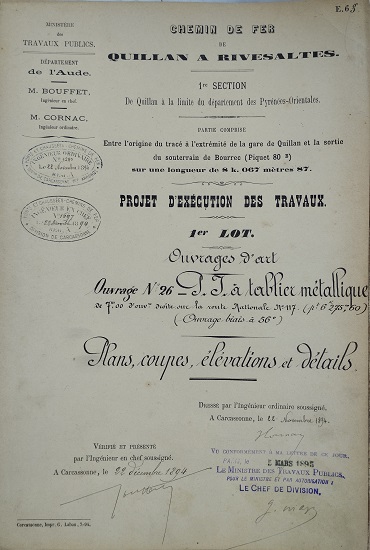 E.65
MINISTÈRE
des
TRAVAUX PUBLICS.
DÉPARTEMENT
de l'Aude.
M. BOUFFET,
Ingénieur en chef.
M. CORNAC,
Ingénieur ordinaire.
INGÉNIEUR ORDINAIRE
Le 22 Novembre 1894
INGÉNIEUR EN CHEF
DIVISION DE CARCASSONNE
CHEMIN DE FER
DE
QUILLAN A RIVESALTES.
1re SECTION
De Quillan à la limite du département des Pyrénées-Orientales.
PARTIE COMPRISE
Entre l'origine du tracé à l'extrémité de la gare de Quillan et la sortie
du souterrain de Bourrec (Piquet 80 a)
sur une longueur de 8 k. 067 mètres 87.
PROJET D'EXÉCUTION DES TRAVAUX.
1er LOT.
Ouvrages d'art
Ouvrage N° 26 P. I. à tablier métallique
de 7m,00 d'ouvre droite sur la route Nationale N° 117
(Ouvrage biais à 56°)
Plans, coupes, élévations et détails
DRESSÉ par l'Ingénieur ordinaire soussigné.
A Carcassonne, le 22 Novembre 1894.
VÉRIFIÉ ET PRÉSENTÉ
par l'Ingénieur en chef soussigné.
A Carcassonne, le 22 décembre 1894
VU CONFORMÉMENT A MA LETTRE DE CE JOUR.
5 MARS 1895
LE MINISTRE DES TRAVAUX PUBLICS,
POUR LE MINISTRE ET PAR AUTORISATION :
LE CHEF DE DIVISION,
Carcassonne, Impr. G. Labau, 7-94.